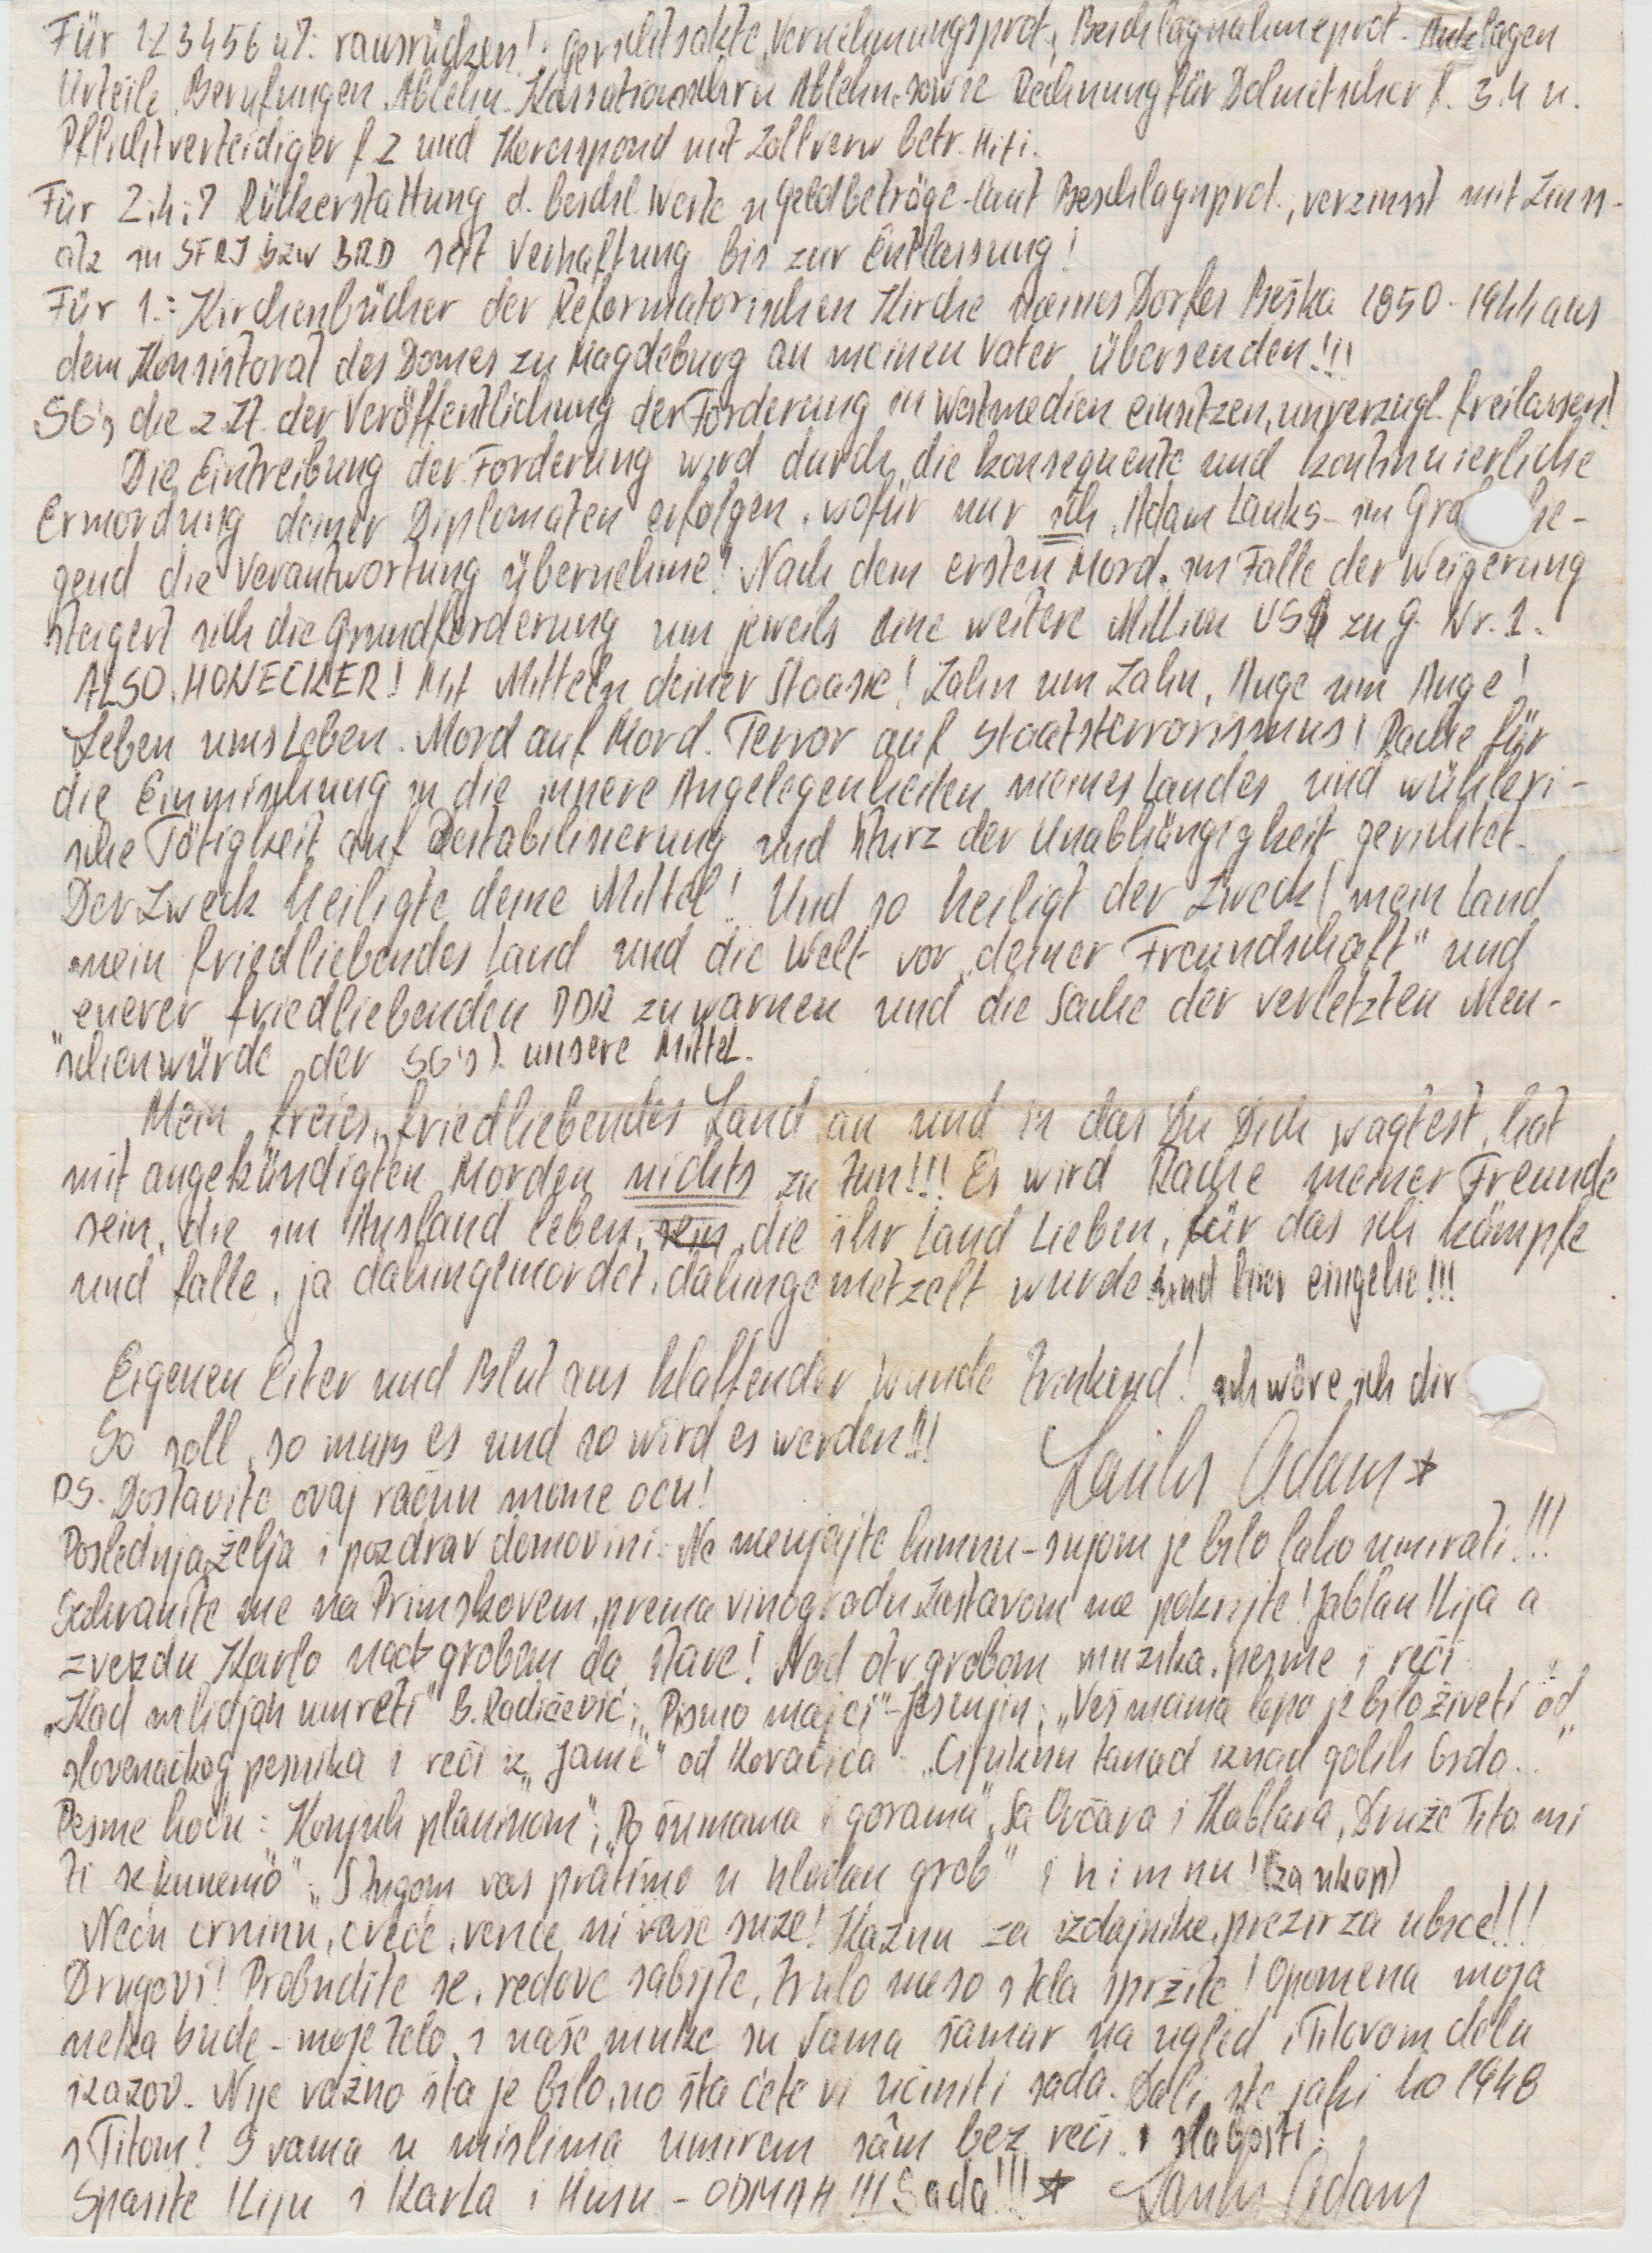 Für 1 2 3 4 5 6 u 7: rausrücken!: Gerichtsakte, Vernehmungsprot., Beschlagnahmeprot. Anklagen
Urteile, Berufungen, Ablehn. Kassationsschr u Ablehn. sowie Rechnung für Dolmetscher f. 3.4 u.
Pflichtverteidiger f 2 und Korrespond mit Zollverw betr. Hifi.
Für 2.4.7 Rückerstattung d. beschl. Werte u Geldbeträge laut Beschlagnprot., verzinst mit Zinss-
atz in SFRJ bzw BRD seit Verhaftung bis zur Entlassung!
Für 1.: Kirchenbücher der Reformatorischen Kirche meines Dorfes Beška 1850 - 1944 aus
dem Konsistorat des Domes zu Magdeburg an meinen Vater übersenden!!!
SG's, die z. Zt. der Veröffentlichung der Forderung in Westmedien einsitzen, unverzügl. freilassen!
Die Eintreibung der Forderung wird durch die konsequente und kontinuierliche
Ermordung deiner Diplomaten erfolgen, wofür nur ich, Adam Lauks - im Gra
gend die Verantwortung übernehme! Nach dem ersten Mord, im Falle der Weigerung
steigert sich die Grundforderung um jeweils eine weitere Million US$ zu G. Nr. 1.
ALSO, HONECKER! Mit Mitteln deiner Staasie! Zahn um Zahn, Auge um Auge!
Leben ums Leben. Mord auf Mord. Terror auf Staatsterrorismus! Rache für
die Einmischung in die innere Angelegenheiten meines Landes und wühleri-
sche Tätigkeit auf Destabilisierung und Sturz der Unabhängigkeit gerichtet.
Der Zweck heiligte deine Mittel! Und so heiligt der Zweck ( mein Land
mein friedliebendes Land und die Welt vor "deiner Freundschaft" und
euerer friedliebenden DDR zu warnen und die Sache der verletzten Men-
schenwürde der SG's) unsere Mittel.
Mein freies, friedliebendes Land an und in das Du Dich wagtest, hat
mit angekündigten Morden nichts zu tun!!! Es wird Rache meiner Freunde
sein, die im Ausland leben, sein, die ihr Land lieben, für das ich kämpfe
und falle, ja dahingemordet, dahingemetzelt wurde und hier eingehe!!!
Eigenen Eiter und Blut aus klaffender Wunde trinkend! schwöre ich dir
So soll, so muss es und so wird es werden!!!
Lauks Adam ★
PS. Dostavite ovaj račun mome ocu!
Poslednja želja i pozdrav domovini: Ne menjajte himnu - snjom je bilo lako umirati!!!
Sahranite me na Primskovem, prema vinogradu. Zastavom me pokrijte! Jablan Ilija a
zvezdu Karlo nad grobom da stave! Nad otv grobom muzika, pesme i reči
"Kad mlidijah umreti" B. Radičević; "Pismo majci" - Jesenjin; "Veš mama lepo je bilo živeti" od
slovenačkog pesnika i reči iz "Jame" od Kovačića - "Cijuknu tanad iznad golih brda..."
Pesme hoću: "Konjuh planinom"; "Po šumama i gorama", Sa Ovčara i Kablara, Druže Tito mi
ti se kunemo"; "S tugom vas pratimo u hladan grob" i himnu! (za ukop)
Neću crninu, cveće, vence ni vaše suze! Kaznu za izdajnike, prezir za ubice!!!
Drugovi! Probudite se, redove sabijte, trulo meso s tela spržite! Opomena moja
neka bude - moje telo, i naše muke su vama šamar na ugled i Titovom delu
izazov. Nije važno šta je bilo, no šta ćete vi učiniti sada. Dali ste jaki ko 1948
s Titom! S vama u mislima umirem sâm bez reči i slabosti!
Spasite Iliju i Karla i Husu - ODMAH!!! Sada!!! ★ Lauks Adam